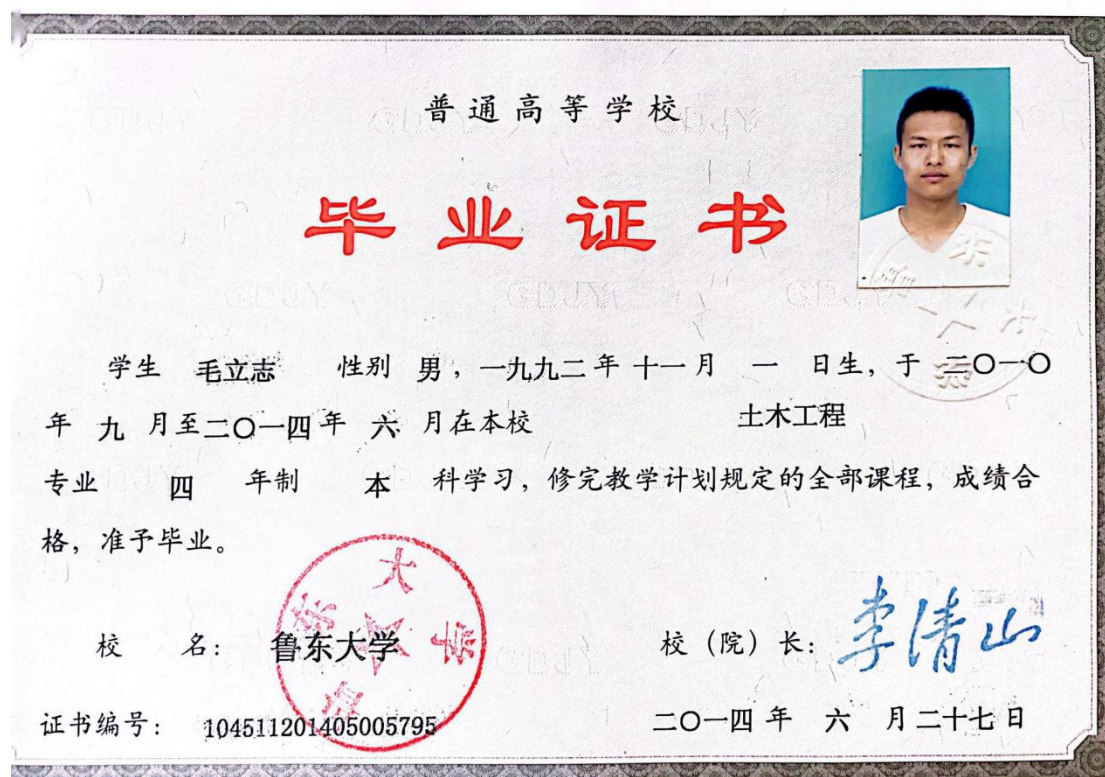 普通高等学校
毕业证书
学生 毛立志 性别 男，一九九二年 十一月 一 日生，于 二〇一〇
年 九 月至二〇一四年 六 月在本校 土木工程
专业 四 年制 本 科学习，修完教学计划规定的全部课程，成绩合
格，准予毕业。
校 名：鲁东大学
校（院）长：李清山
证书编号：104511201405005795
二〇一四 年 六 月二十七日
鲁东大学